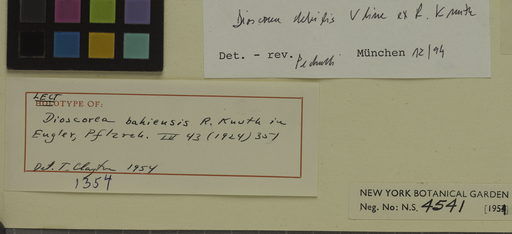 Dioscorea debilis Uline ex R. Knuth
Det. - rev. Pedralli München 12/94
LECT
HOLOTYPE OF:
Dioscorea bahiensis R. Knuth in
Engler, Pflzrch. IV 43 (1924) 351
Det. T. Clayton 1954
1354
NEW YORK BOTANICAL GARDEN
Neg. No: N.S. 4541 [1954]